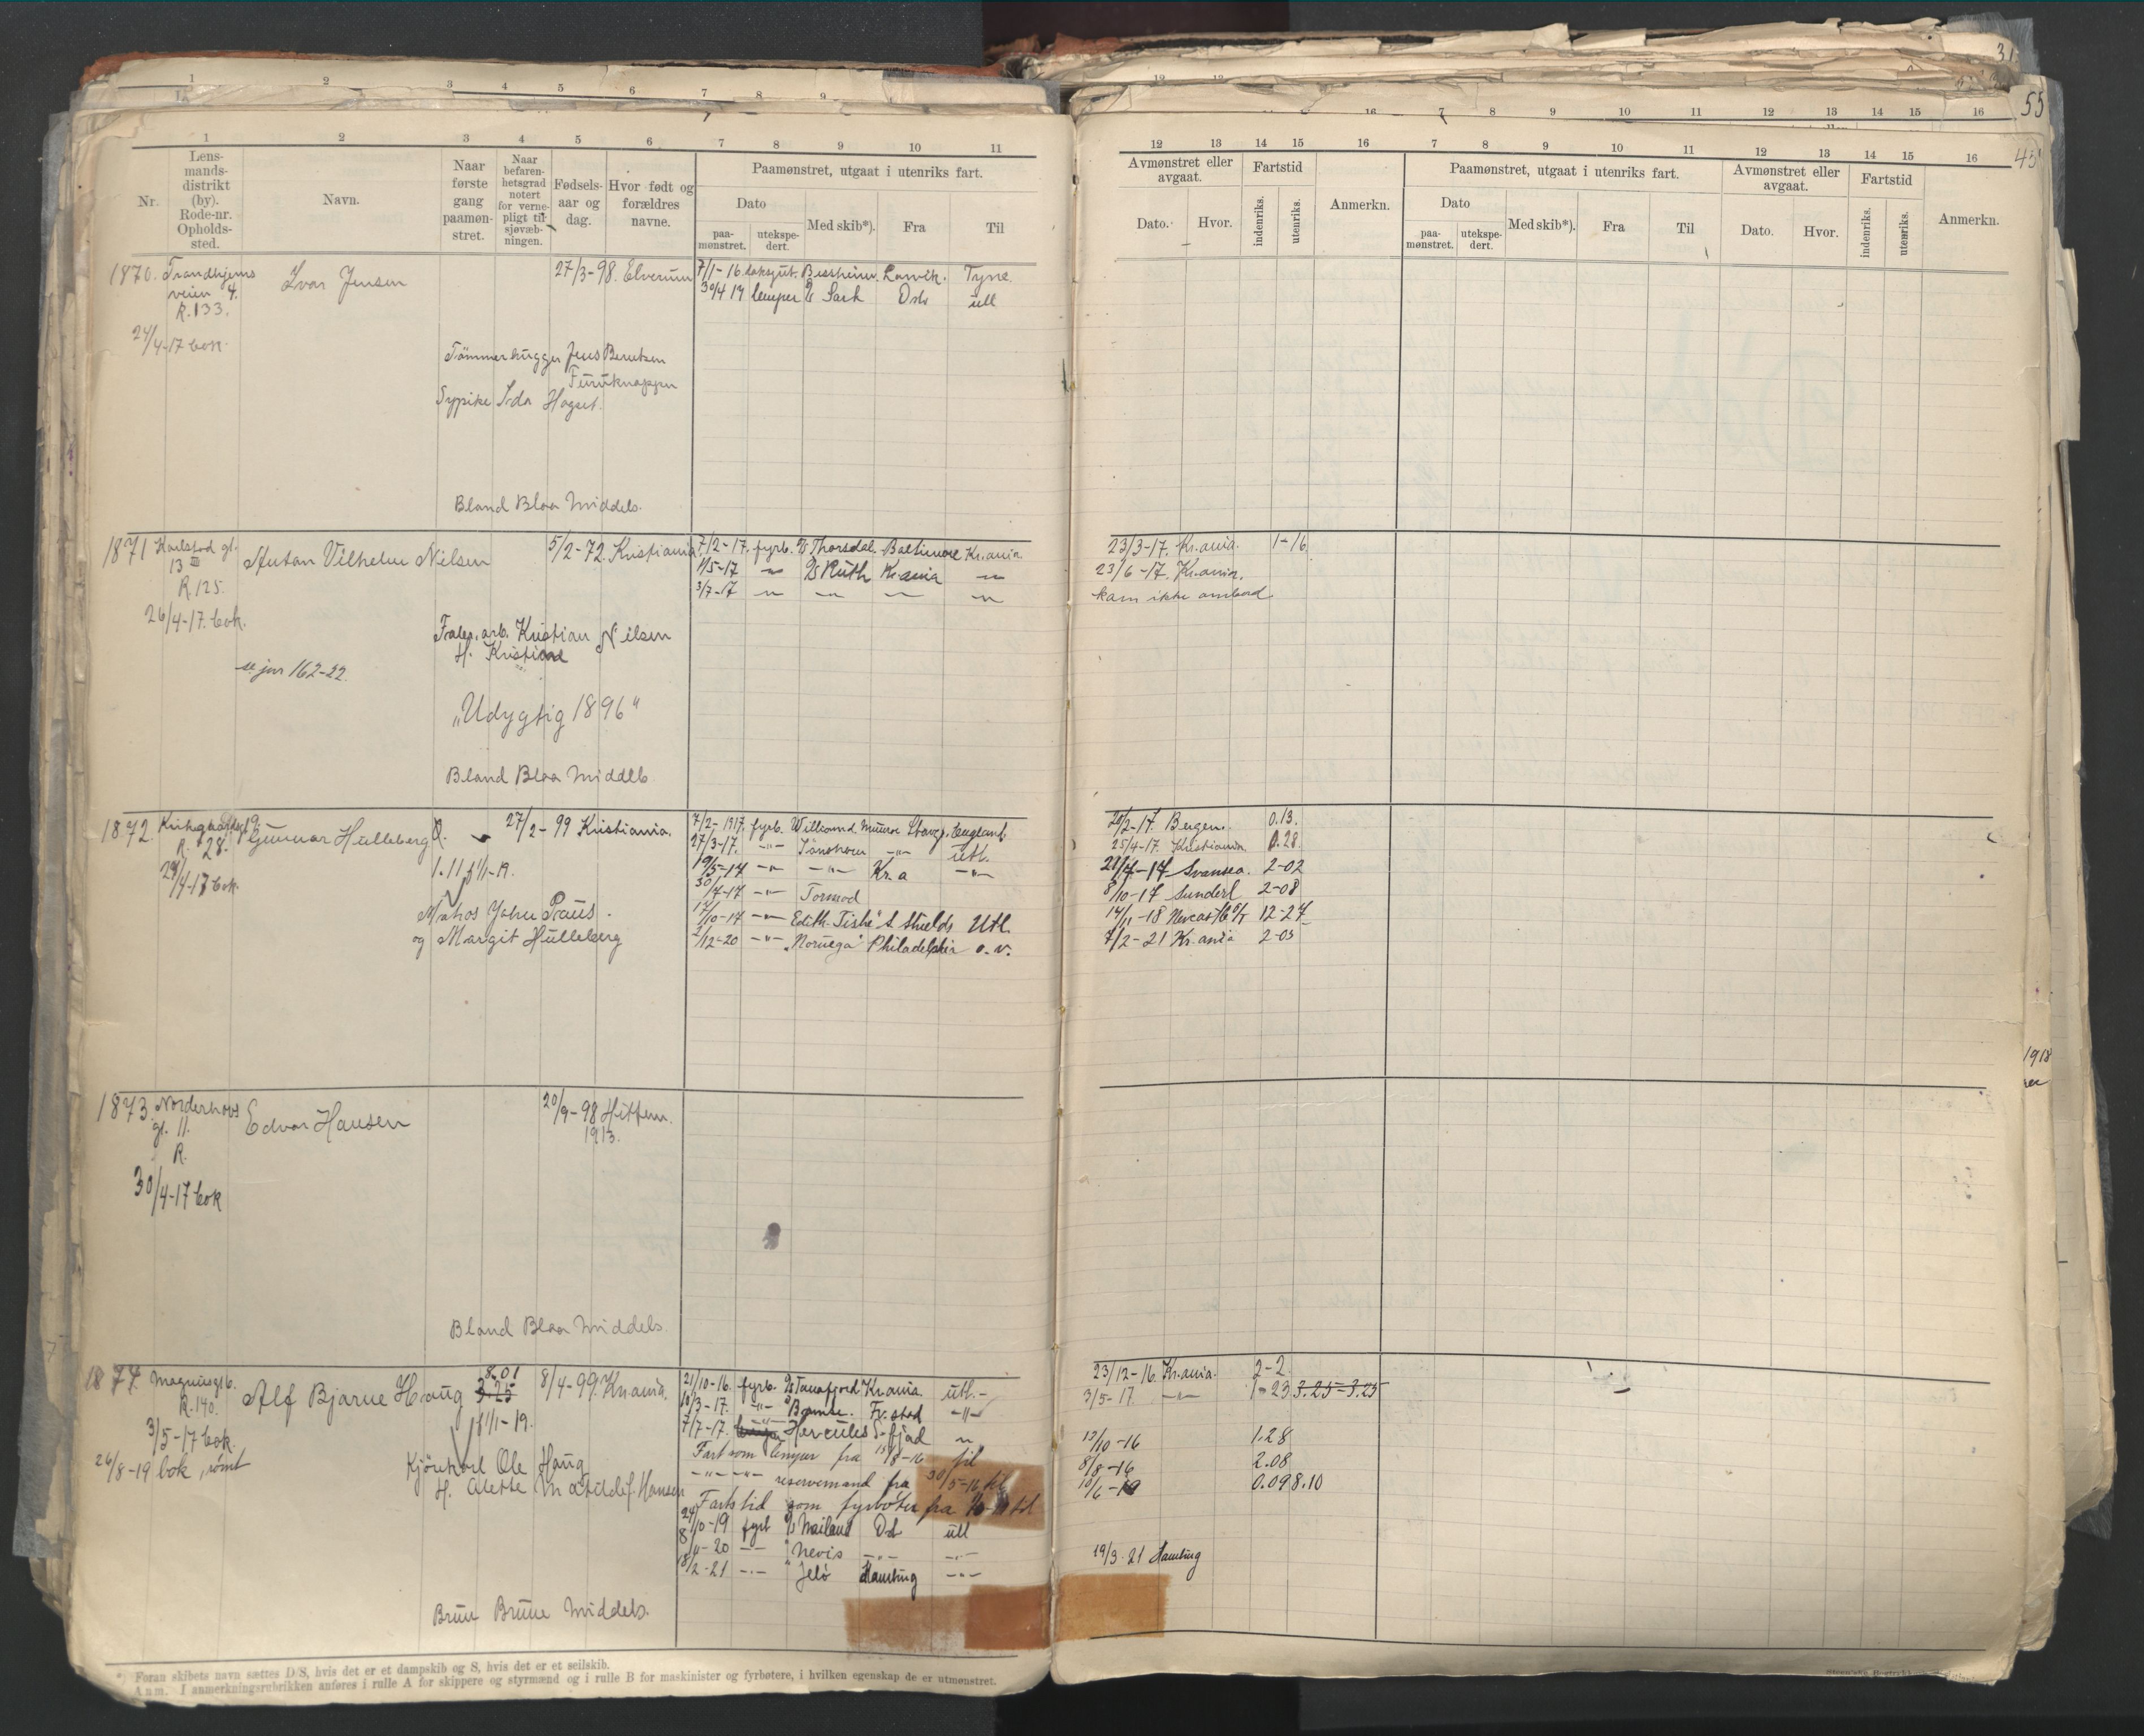 1 2 3 4 5 6 7 8 9 10 11
Nr.
Lens-
mands-
distrikt
(by).
Rode-nr.
Opholds-
sted.
Navn.
Naar
første
gang
paamøn-
stret.
Naar
befaren-
hetsgrad
notert
for verne-
pligt til
sjøvæb-
ningen.
Fødsels-
aar og
dag.
Hvor født og
forældres
navne.
Paamønstret, utgaat i utenriks fart.
Dato
paa-
mønstret.
utekspe-
dert.
Med skib*).
Fra
Til
1870. Trondhjems
veien 4.
R. 133.
24/4-17 bok.
Ivar Jensen
27/3-98. Elverum
7/1-16 Larvik. Tyne.
30/4 17 lemper D/S Sark Oslo utl
Tømmerhugger Jens Berntsen
Furuknappen
Sypike Ida Hagset.
Bland Blaa Middels.
1871 Karlstad gt.
13 III
R. 125.
26/4-17. bok.
Anton Vilhelm Nilsen
5/2-72. Kristiania
7/2-17. fyrb. D/S Thorsdal. Baltimore Kr.ania
1/5-17 -"- D/S Ruth Kr.ania -"-
3/7-17 -"- -"- -"- -"-
Kristian Nilsen
H. Kristine
se jnr 162-22.
"Udygtig 1896"
Bland Blaa Middels
1872.
R. 28.
bok.
Gunnar Hulleberg
27/2-99 Kristiania.
7/2-1917. fyrb. England.
27/3-17. -"- -"- utl.
19/5-17 -"- -"- Kr.a -"-
30/7-17 -"- Tormod
17/10-17 -"- Edith. S. Shields Utl.
2/12-20 -"- "Noruega" Philadelphia o.v.
1.11 1/1-19.
Matros John Paus.
og Margit Hulleberg
1873. Norderhovs
gt. 11.
R.
30/4-17 bok
Edvar Hansen
20/9-98 Hittern.
1913.
Bland Blaa Middels.
1874. Magnusgt 6.
R. 140.
3/5-17 bok.
26/8-19 bok, rømt
Alf Bjarne Haug
8.01
3.25
1/1-19.
8/4-99. Kr.ania.
Ole Haug
H. Alette Mathilde f. Hansen
21/10-16. fyrb. D/S Tanafjord Kr.ania. utl.-
10/3-17. -"- Fr.stad -"-
7/7-17. Hercules S-fjord -"-
Fart som lemper fra 15/8-16 til
-"- -"- reservemand fra 30/5-16 til
Fartstid som fyrbøter fra
24/10-19 fyrb D/S Mailand Osl utl
8/4-20 -"- " Nevis -"- -"-
18/2-21 -"- " Jelø Hamburg -"-
Brun Brune Middels.
*) Foran skibets navn sættes D/S, hvis det er et dampskib og S, hvis det er et seilskib.
Anm. I anmerkningsrubrikken anføres i rulle A for skippere og styrmænd og i rulle B for maskinister og fyrbøtere, i hvilken egenskap de er utmønstret.
31
55
45
12 13 14 15 16 7 8 9 10 11 12 13 14 15 16
Avmønstret eller
avgaat.
Dato.
Hvor.
Fartstid
indenriks.
utenriks.
Anmerkn.
Paamønstret, utgaat i utenriks fart.
Dato
paa-
mønstret.
utekspe-
dert.
Med skib*).
Fra
Til
Avmønstret eller
avgaat.
Dato.
Hvor.
Fartstid
indenriks.
utenriks.
Anmerkn.
23/3-17. Kr.ania. 1-16
23/6-17. Kr.ania.
kom ikke ombord
20/2-17. Bergen. 0.13.
25/4-17. Kristiania. 0.28.
21/7-17 Swansea. 2-02
8/10-17 Sunderl 2-08
14/1-18 12-27
7/2-21 Kr.ania 2-05
23/12-16. Kr.ania. 2-2.
3/5-17. -"- 1-23 3.25-3.25
12/10-16 1.28
8/8-16 2.08
10/6-19 0.09 8.10
19/3-21 Hamburg
1918